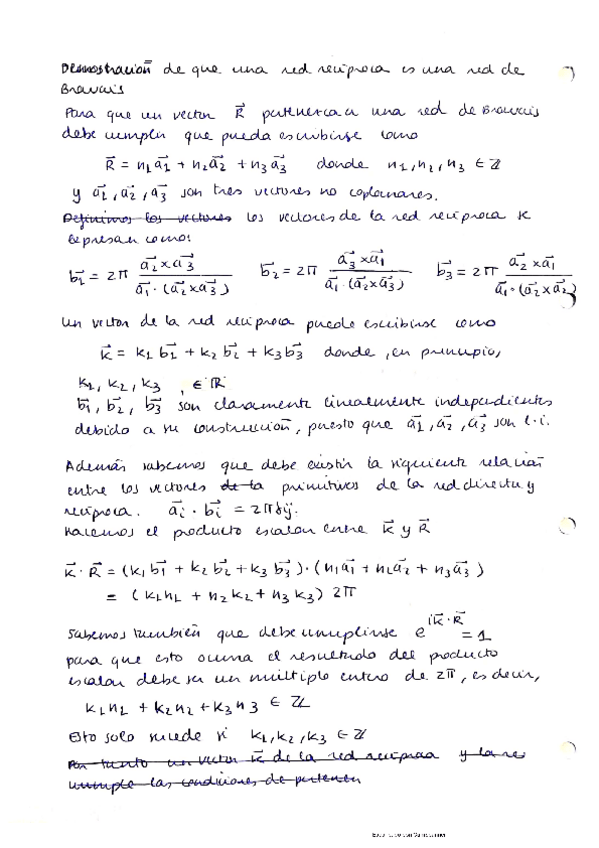 Demostración de que una red recíproca es una red de
Bravais
Para que un vector R⃗ pertenezca a una red de Bravais
debe cumplir que pueda escribirse como
R⃗ = n1a⃗1 + n2a⃗2 + n3a⃗3 donde n1, n2, n3 ∈ ℤ
y a⃗1, a⃗2, a⃗3 son tres vectores no coplanares.
Definimos los vectores los vectores de la red recíproca se
expresan como:
b⃗1 = 2π (a⃗2 × a⃗3) / (a⃗1 · (a⃗2 × a⃗3)) b⃗2 = 2π (a⃗3 × a⃗1) / (a⃗1 · (a⃗2 × a⃗3)) b⃗3 = 2π (a⃗2 × a⃗1) / (a⃗1 · (a⃗2 × a⃗3))
Un vector de la red recíproca puede escribirse como
k⃗ = k1 b⃗1 + k2 b⃗2 + k3 b⃗3 donde, en principio,
k1, k2, k3 , ∈ ℝ
b⃗1, b⃗2, b⃗3 son claramente linealmente independientes
debido a su construcción, puesto que a⃗1, a⃗2, a⃗3 son l.i.
Además sabemos que debe existir la siguiente relación
entre los vectores de la primitivos de la red directa y
recíproca. a⃗i · b⃗i = 2πδij.
Hacemos el producto escalar entre k⃗ y R⃗
k⃗ · R⃗ = (k1 b⃗1 + k2 b⃗2 + k3 b⃗3) · (n1a⃗1 + n2a⃗2 + n3a⃗3)
= (k1n1 + n2k2 + n3k3) 2π
Sabemos también que debe cumplirse e^{ik⃗·R⃗} = 1
para que esto ocurra el resultado del producto
escalar debe ser un múltiplo entero de 2π, es decir,
k1n1 + k2n2 + k3n3 ∈ ℤ
Esto solo sucede si k1, k2, k3 ∈ ℤ
Por tanto un vector k⃗ de la red recíproca y la re
cumple las condiciones de pertenen